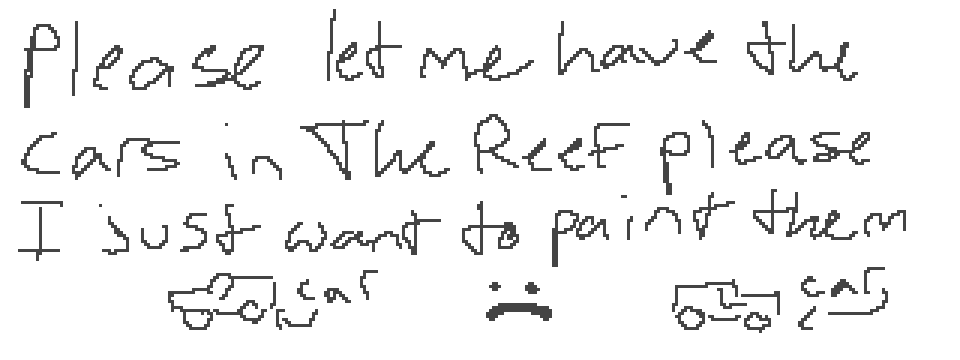 Please let me have the
cars in The Reef please
I just want to paint them
car car